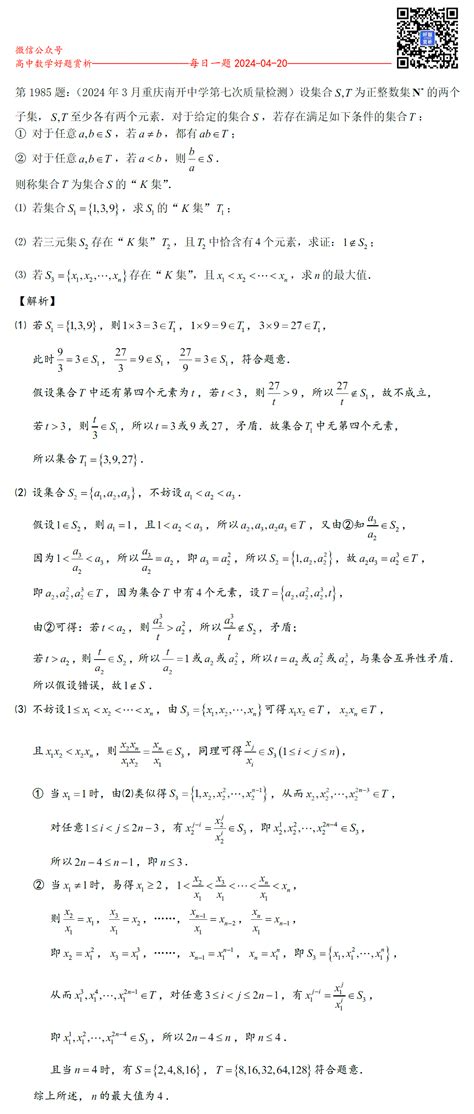 微信公众号
高中数学好题赏析
每日一题 2024-04-20
好题赏析
第 1985 题：（2024 年 3 月重庆南开中学第七次质量检测）设集合 S,T 为正整数集 N* 的两个
子集，S,T 至少各有两个元素．对于给定的集合 S，若存在满足如下条件的集合 T；
① 对于任意 a,b∈S，若 a≠b，都有 ab∈T；
② 对于任意 a,b∈T，若 a<b，则 b/a∈S．
则称集合 T 为集合 S 的“ K 集”．
⑴ 若集合 S₁={1,3,9}，求 S₁ 的“ K 集” T₁；
⑵ 若三元集 S₂ 存在“ K 集” T₂，且 T₂ 中恰含有 4 个元素，求证：1∉S₂；
⑶ 若 S₃={x₁,x₂,⋯,xₙ} 存在“ K 集”，且 x₁<x₂<⋯<xₙ，求 n 的最大值．
【解析】
⑴ 若 S₁={1,3,9}，则 1×3=3∈T₁，1×9=9∈T₁，3×9=27∈T₁，
此时 9/3=3∈S₁，27/3=9∈S₁，27/9=3∈S₁，符合题意．
假设集合 T 中还有第四个元素为 t，若 t<3，则 27/t>9，所以 27/t∉S₁，故不成立，
若 t>3，则 t/3∈S₁，所以 t=3 或 9 或 27，矛盾．故集合 T₁ 中无第四个元素，
所以集合 T₁={3,9,27}．
⑵ 设集合 S₂={a₁,a₂,a₃}，不妨设 a₁<a₂<a₃．
假设 1∈S₂，则 a₁=1，且 1<a₂<a₃，所以 a₂,a₃,a₂a₃∈T，又由②知 a₃/a₂∈S₂，
因为 1<a₃/a₂<a₃，所以 a₃/a₂=a₂，即 a₃=a₂²，所以 S₂={1,a₂,a₂²}，故 a₂a₃=a₂³∈T，
即 a₂,a₂²,a₂³∈T，因为集合 T 中有 4 个元素，设 T={a₂,a₂²,a₂³,t}，
由②可得：若 t<a₂，则 a₂³/t>a₂²，所以 a₂³/t∉S₂，矛盾；
若 t>a₂，则 t/a₂∈S₂，所以 t/a₂=1 或 a₂ 或 a₂²，所以 t=a₂ 或 a₂² 或 a₂³，与集合互异性矛盾．
所以假设错误，故 1∉S．
⑶ 不妨设 1≤x₁<x₂<⋯<xₙ，由 S₃={x₁,x₂,⋯,xₙ} 可得 x₁x₂∈T，x₂xₙ∈T，
且 x₁x₂<x₂xₙ，则 x₂xₙ/x₁x₂=xₙ/x₁∈S₃，同理可得 xⱼ/xᵢ∈S₃(1≤i<j≤n)，
① 当 x₁=1 时，由⑵类似得 S₃={1,x₂,x₂²,⋯,x₂ⁿ⁻¹}，从而 x₂,x₂²,⋯,x₂²ⁿ⁻³∈T，
对任意 1≤i<j≤2n−3，有 x₂ʲ⁻ⁱ=x₂ʲ/x₂ⁱ∈S₃，即 x₂¹,x₂²,⋯,x₂²ⁿ⁻⁴∈S₃，
所以 2n−4≤n−1，即 n≤3．
② 当 x₁≠1 时，易得 x₁≥2，1<x₂/x₁<x₃/x₁<⋯<xₙ/x₁<xₙ，
则 x₂/x₁=x₁，x₃/x₁=x₂，……，xₙ₋₁/x₁=xₙ₋₂，xₙ/x₁=xₙ₋₁，
即 x₂=x₁²，x₃=x₁³，……，xₙ₋₁=x₁ⁿ⁻¹，xₙ=x₁ⁿ，即 S₃={x₁,x₁²,⋯,x₁ⁿ}，
从而 x₁³,x₁⁴,⋯,x₁²ⁿ⁻¹∈T，对任意 3≤i<j≤2n−1，有 x₁ʲ⁻ⁱ=x₁ʲ/x₁ⁱ∈S₃，
即 x₁¹,x₁²,⋯,x₁²ⁿ⁻⁴∈S₃，所以 2n−4≤n，即 n≤4．
且当 n=4 时，有 S={2,4,8,16}，T={8,16,32,64,128} 符合题意．
综上所述，n 的最大值为 4．